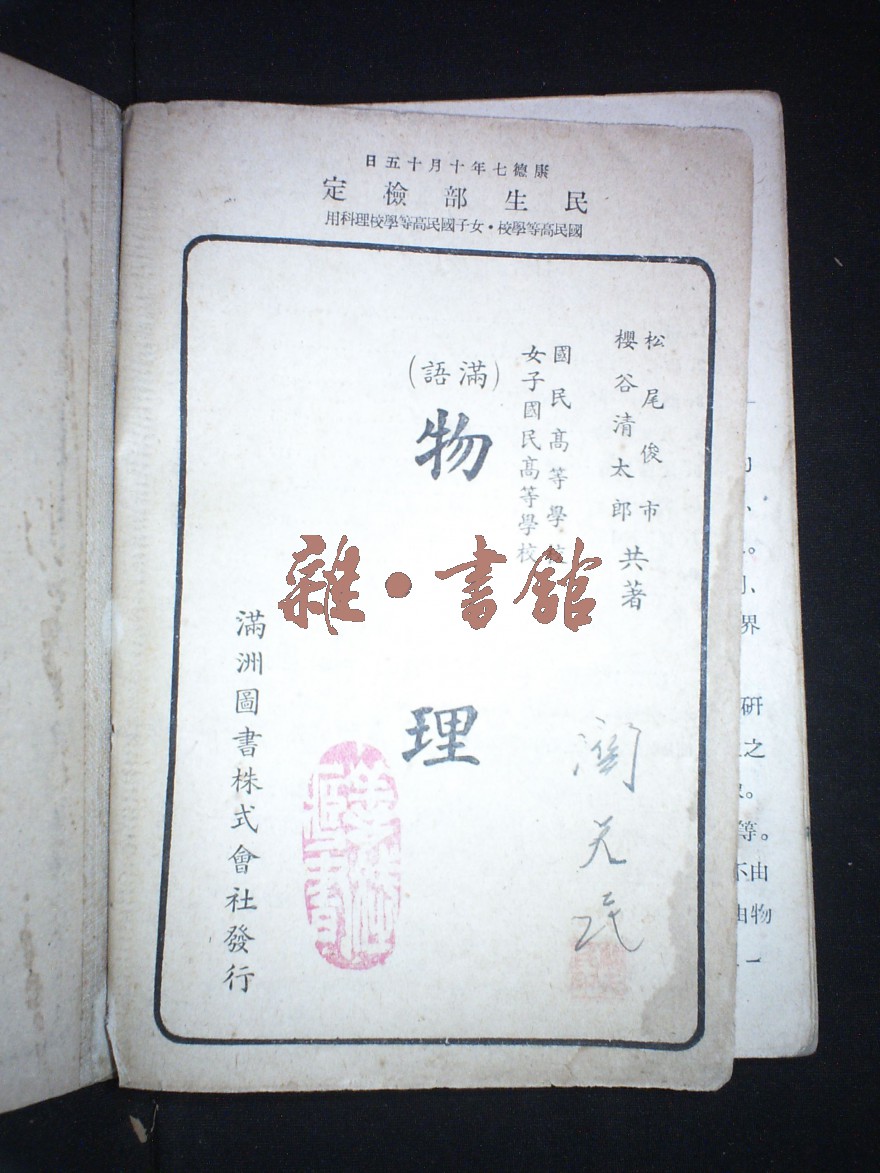 康德七年十月十五日
民生部檢定
國民高等學校・女子國民高等學校理科用
松尾俊市
櫻谷清太郎 共著
國民高等學校
女子國民高等學校
(滿語)
物理
滿洲圖書株式會社發行
雜・書館
界
研
之
等。
不由
由物
一